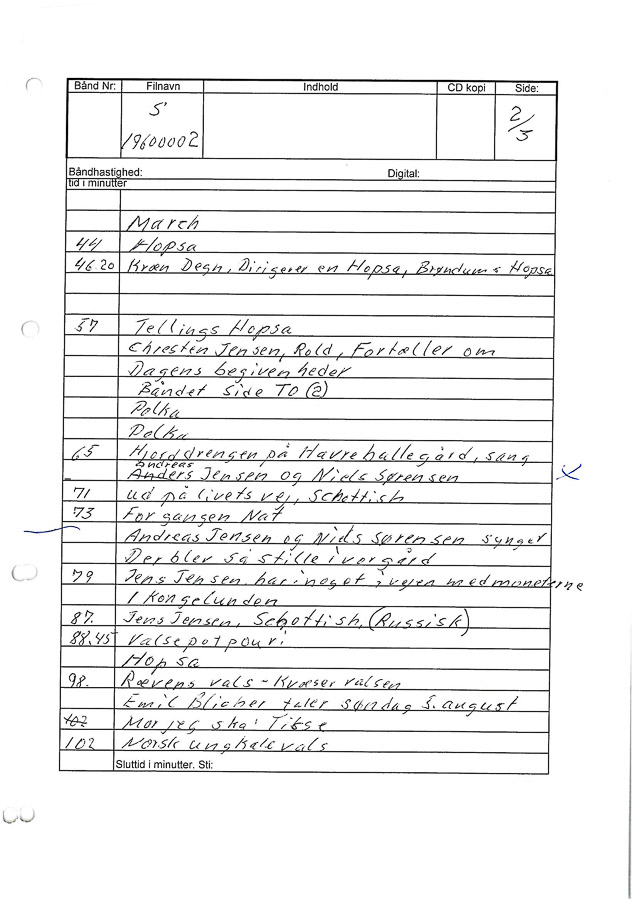 Bånd Nr: Filnavn Indhold CD kopi Side:
S'
19600002
2/3
Båndhastighed: Digital:
tid i minutter
March
44 Hopsa
46.20 Kræn Degn, Dirigerer en Hopsa, Brøndums Hopsa
57 Tellings Hopsa
Chresten Jensen, Rold, Fortæller om
Dagens begivenheder
Båndet side TO (2)
Polka
Polka
65 Hjorddrengen på Havrehallegård, sang
andreas
Anders Jensen og Niels Sørensen
71 ud på livets vej, Schottish
73 For gangen Nat
Andreas Jensen og Niels Sørensen synger
Der blev så stille i vor gård
79 Jens Jensen, har i noget i vejen med moneterne
I Kongelunden
87. Jens Jensen, Schottish, (Russisk)
88.45 Valsepotpouri
Hopsa
98. Rævens vals - Kvæservalsen
Emil Blicher taler søndag 5. august
102 Mor jeg ska' Titse
102 Norsk ungkalevals
Sluttid i minutter. Sti: